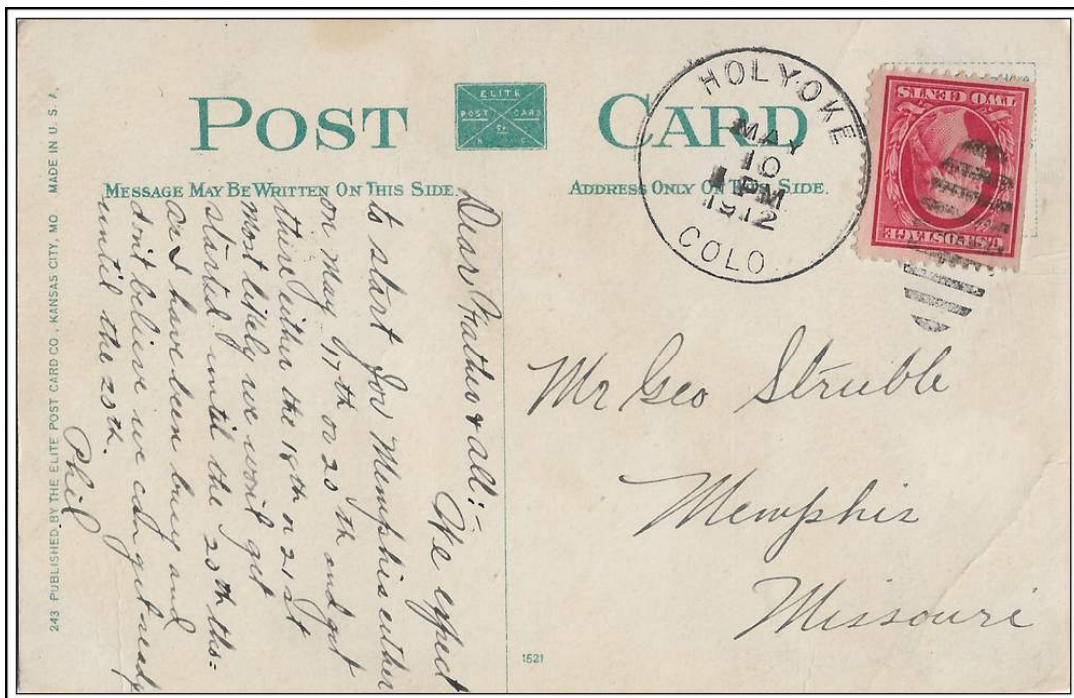 243 PUBLISHED BY THE ELITE POST CARD CO., KANSAS CITY, MO. MADE IN U. S. A.
POST CARD
ELITE
POST CARD
MESSAGE MAY BE WRITTEN ON THIS SIDE.
ADDRESS ONLY ON THIS SIDE.
HOLYOKE
MAY
10
PM
1912
COLO.
U.S. POSTAGE
TWO CENTS
Dear Father & all:-
We expect
to start for Memphis either
on May 17th or 20th and get
there either the 18th or 21st
Most likely we won't get
started until the 20th tho-
as I have been busy and
don't believe we can get ready
until the 20th.
Phil
Mr Geo Struble
Memphis
Missouri
1521